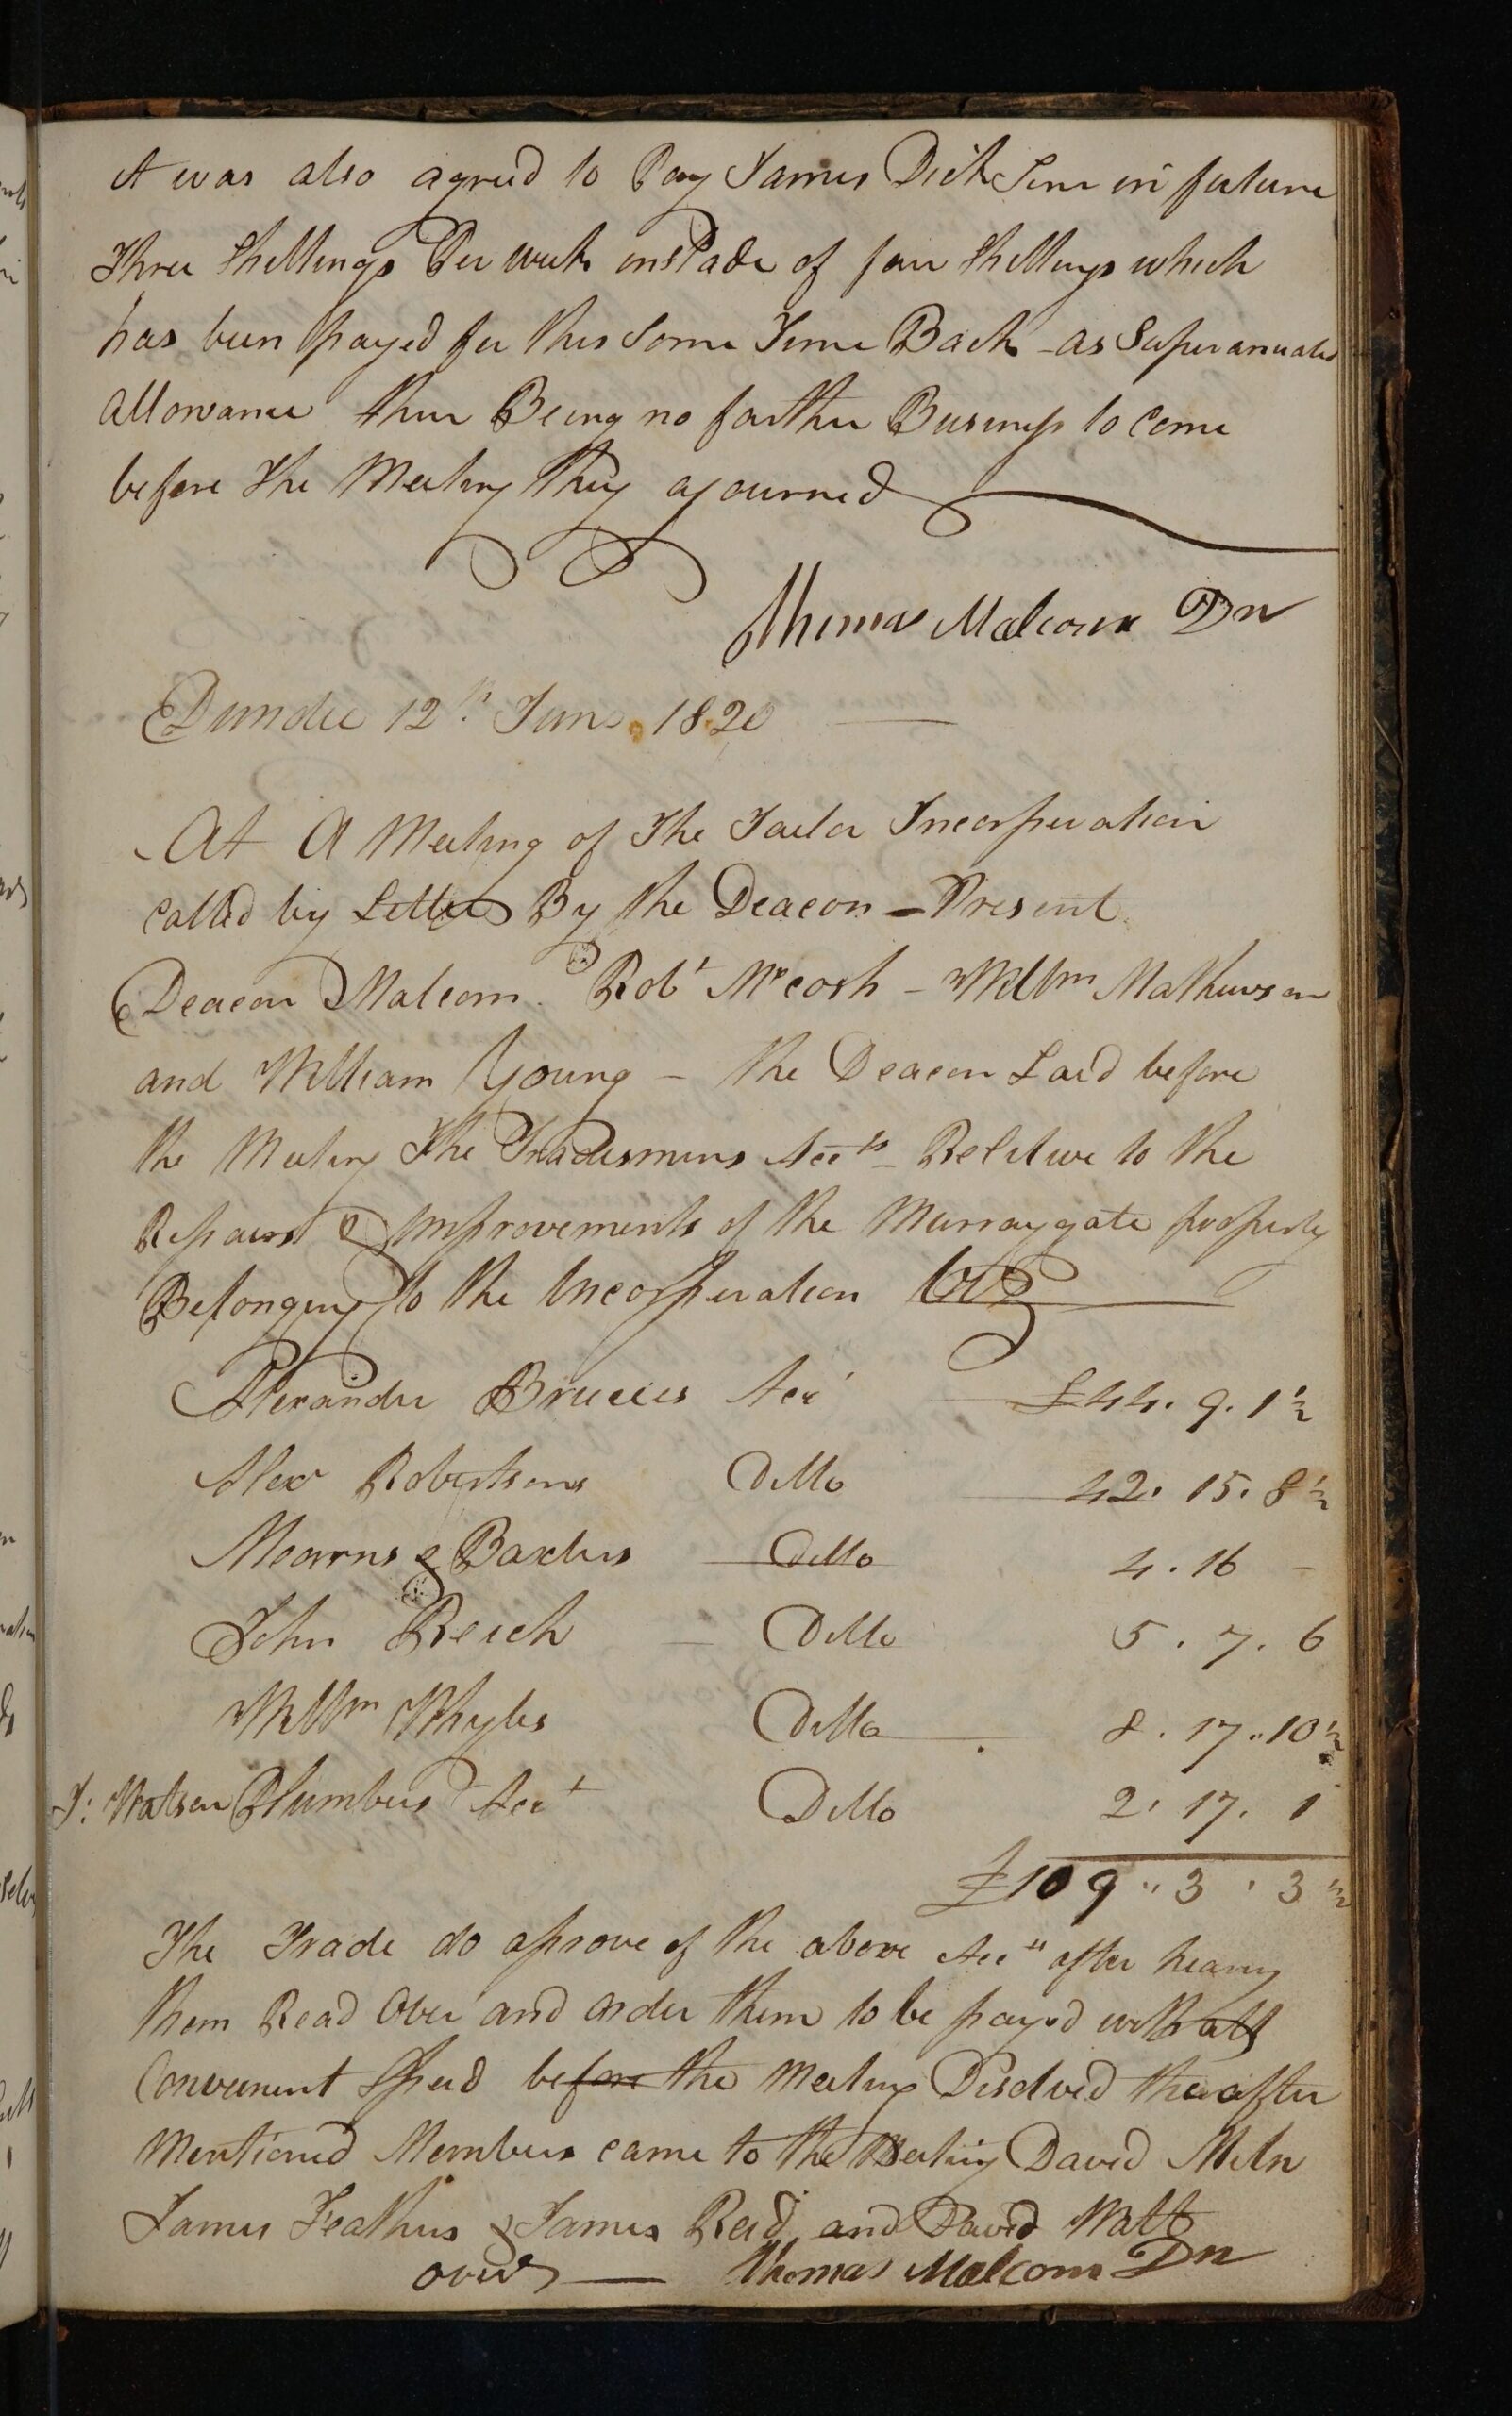 it was also agreed to Pay James Dick Senr in future
Three Shillings Per week instade of four Shillings which
has been payed for this Some Time Back – as Superanuated
allowance ther Being no farther Business to come
before The Meeting They ajourned
Thomas Malcom Dn
Dundee 12th June 1820
At A Meeting of The Tailor Incorperation
called by Letter By the Deacon – Present
Deacon Malcom. Robt Mccosh – Willm Mathewson
and William Young – the Deacon Laid before
the Meeting The Tradesmens Accts – Relitive to the
Repairs & Improvements of the Murraygate property
Belonging to the Incorperation Viz
Alexander Bruces Acct £44. 9. 1½
Alexr Robertsons Ditto 42. 15. 8½
Mearns & Baxters Ditto 4. 16 –
John Reich Ditto 5. 7. 6
Willm Whytes Ditto 8. 17. 10½
J: Watson Plumbers Acct Ditto 2. 17. 1
£109 " 3 . 3½
The Trade do aprove of the above Accts after hearing
them Read Over and order them to be payed with all
Convenient Speed before the Meeting Disolved the after
Mentioned Members came to the Meeting David Miln
James Feathers & James Reid and David Watt
over — Thomas Malcom Dn